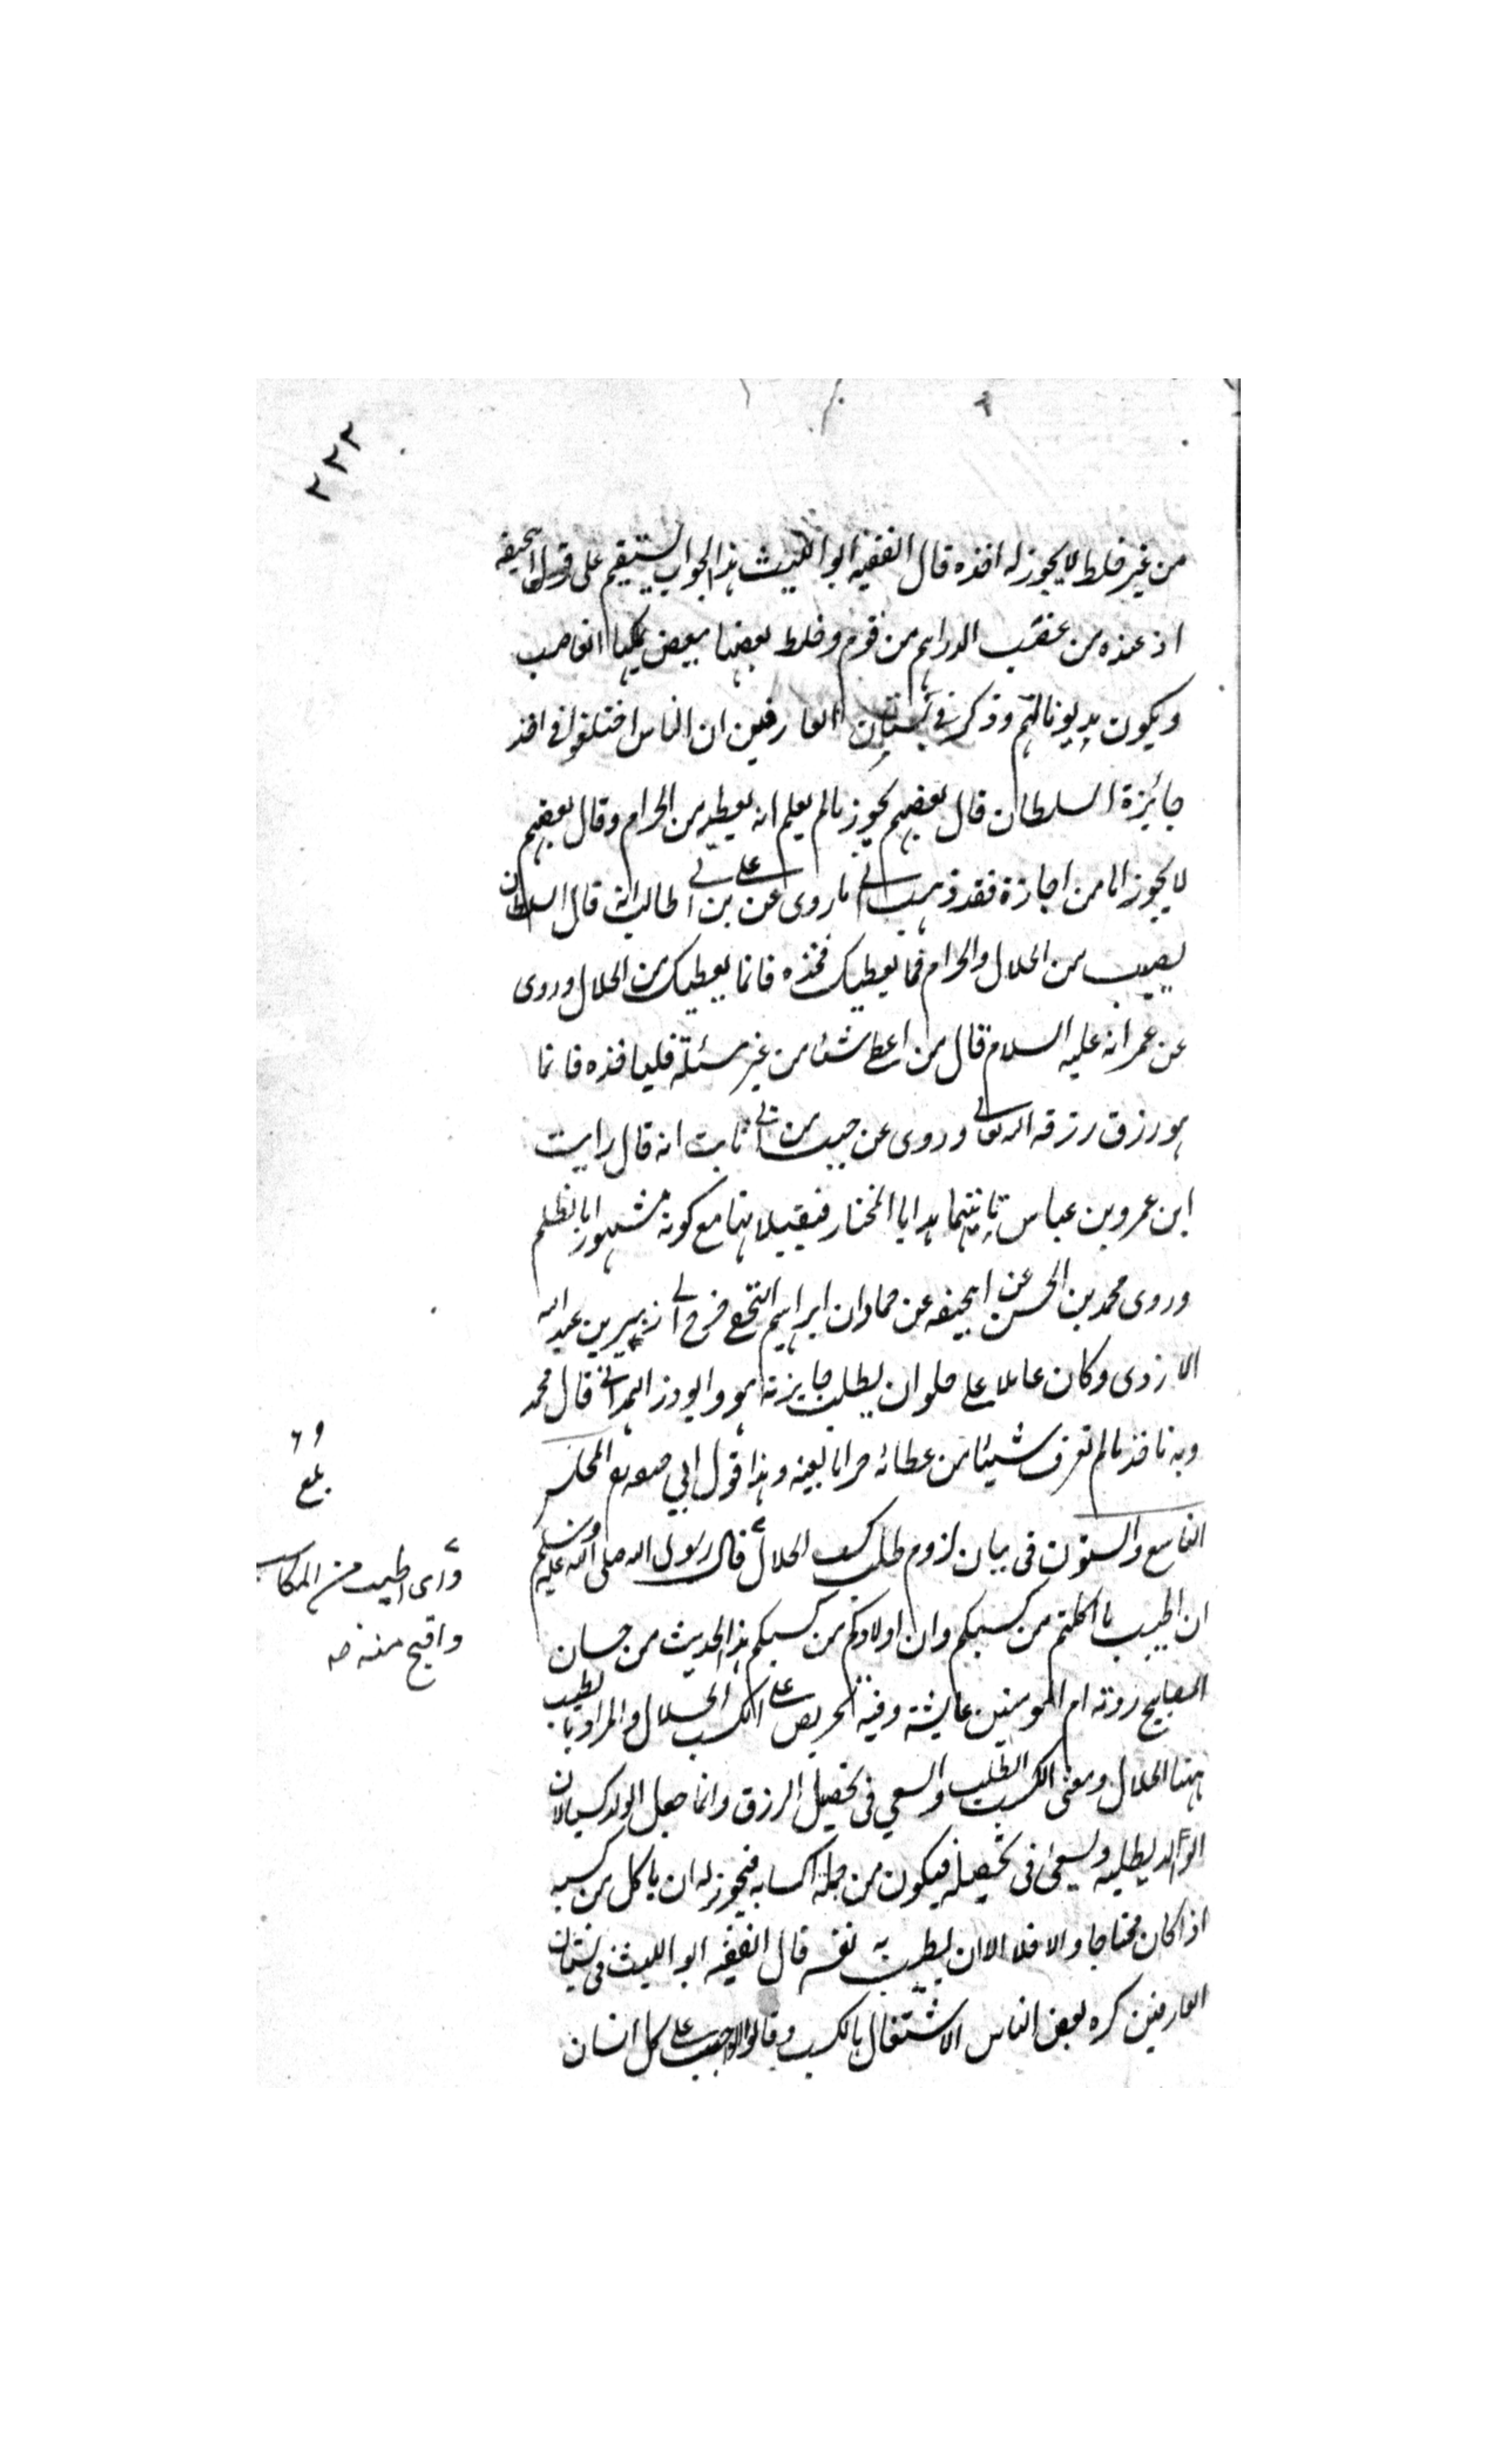 ٢٢٣
من غير خلط لا يجوز له اخذه قال الفقيه ابو الليث هذا الجواب يستقيم على قول ابيحنيفه
اذ عنده من غصب الدراهم من قوم وخلط بعضها ببعض يملكها الغاصب
ويكون مديونا لهم وذكر في بستان العارفين ان الناس اختلفوا في اخذ
جائزة السلطان قال بعضهم يجوز مالم يعلم انه يعطيه من الحرام وقال بعضهم
لا يجوز اما من اجازة فقد ذهب الى ما روى عن على بن ابى طالب انه قال السلطان
يصيب من الحلال والحرام فما يعطيك فخذه فانما يعطيك من الحلال وروى
عن عمر انه عليه السلام قال من اعطى شئا من غير مسئلة فلياخذه فانما
هو رزق رزقه الله تعالى وروى عن حبيب بن ابى ثابت انه قال رايت
ابن عمر وبن عباس تاتيهما هدايا المختار فيقبلانها مع كونه مشهورا بالظلم
وروى محمد بن الحسن عن ابيحنيفه عن حماد ان ابراهيم النخعي خرج الى زهير بن عبد الله
الازدى وكان عاملا على حلوان يطلب جايزته هو وابو ذر الهمدانى قال محمد
وبه ناخذ مالم نعرف شيئا من عطائه حراما بعينه وهذا قول ابي حنيفه المجلس
التاسع والستون فى بيان لزوم طلب كسب الحلال قال رسول الله صلى الله عليه وسلم
ان اطيب ما اكلتم من كسبكم وان اولادكم من كسبكم هذا الحديث من حسان
المصابيح روته ام المومنين عايشة وفيه تحريض على الكسب الحلال والمراد بالطيب
ههنا الحلال ومعنى الكسب الطلب والسعي فى تحصيل الرزق وانما جعل الولد كسبا لان
الوالد يطلبه ويسعى فى تحصيله فيكون من جملة اكسابه فيجوز له ان ياكل من كسبه
اذا كان محتاجا والا فلا الا ان يطيب به نفسه قال الفقيه ابو الليث فى بستان
العارفين كره بعض الناس الاشتغال بالكسب وقالوا الواجب على كل انسان
٦٩
بلغ
واى اطيب من المكاسب
واقبح منه صه